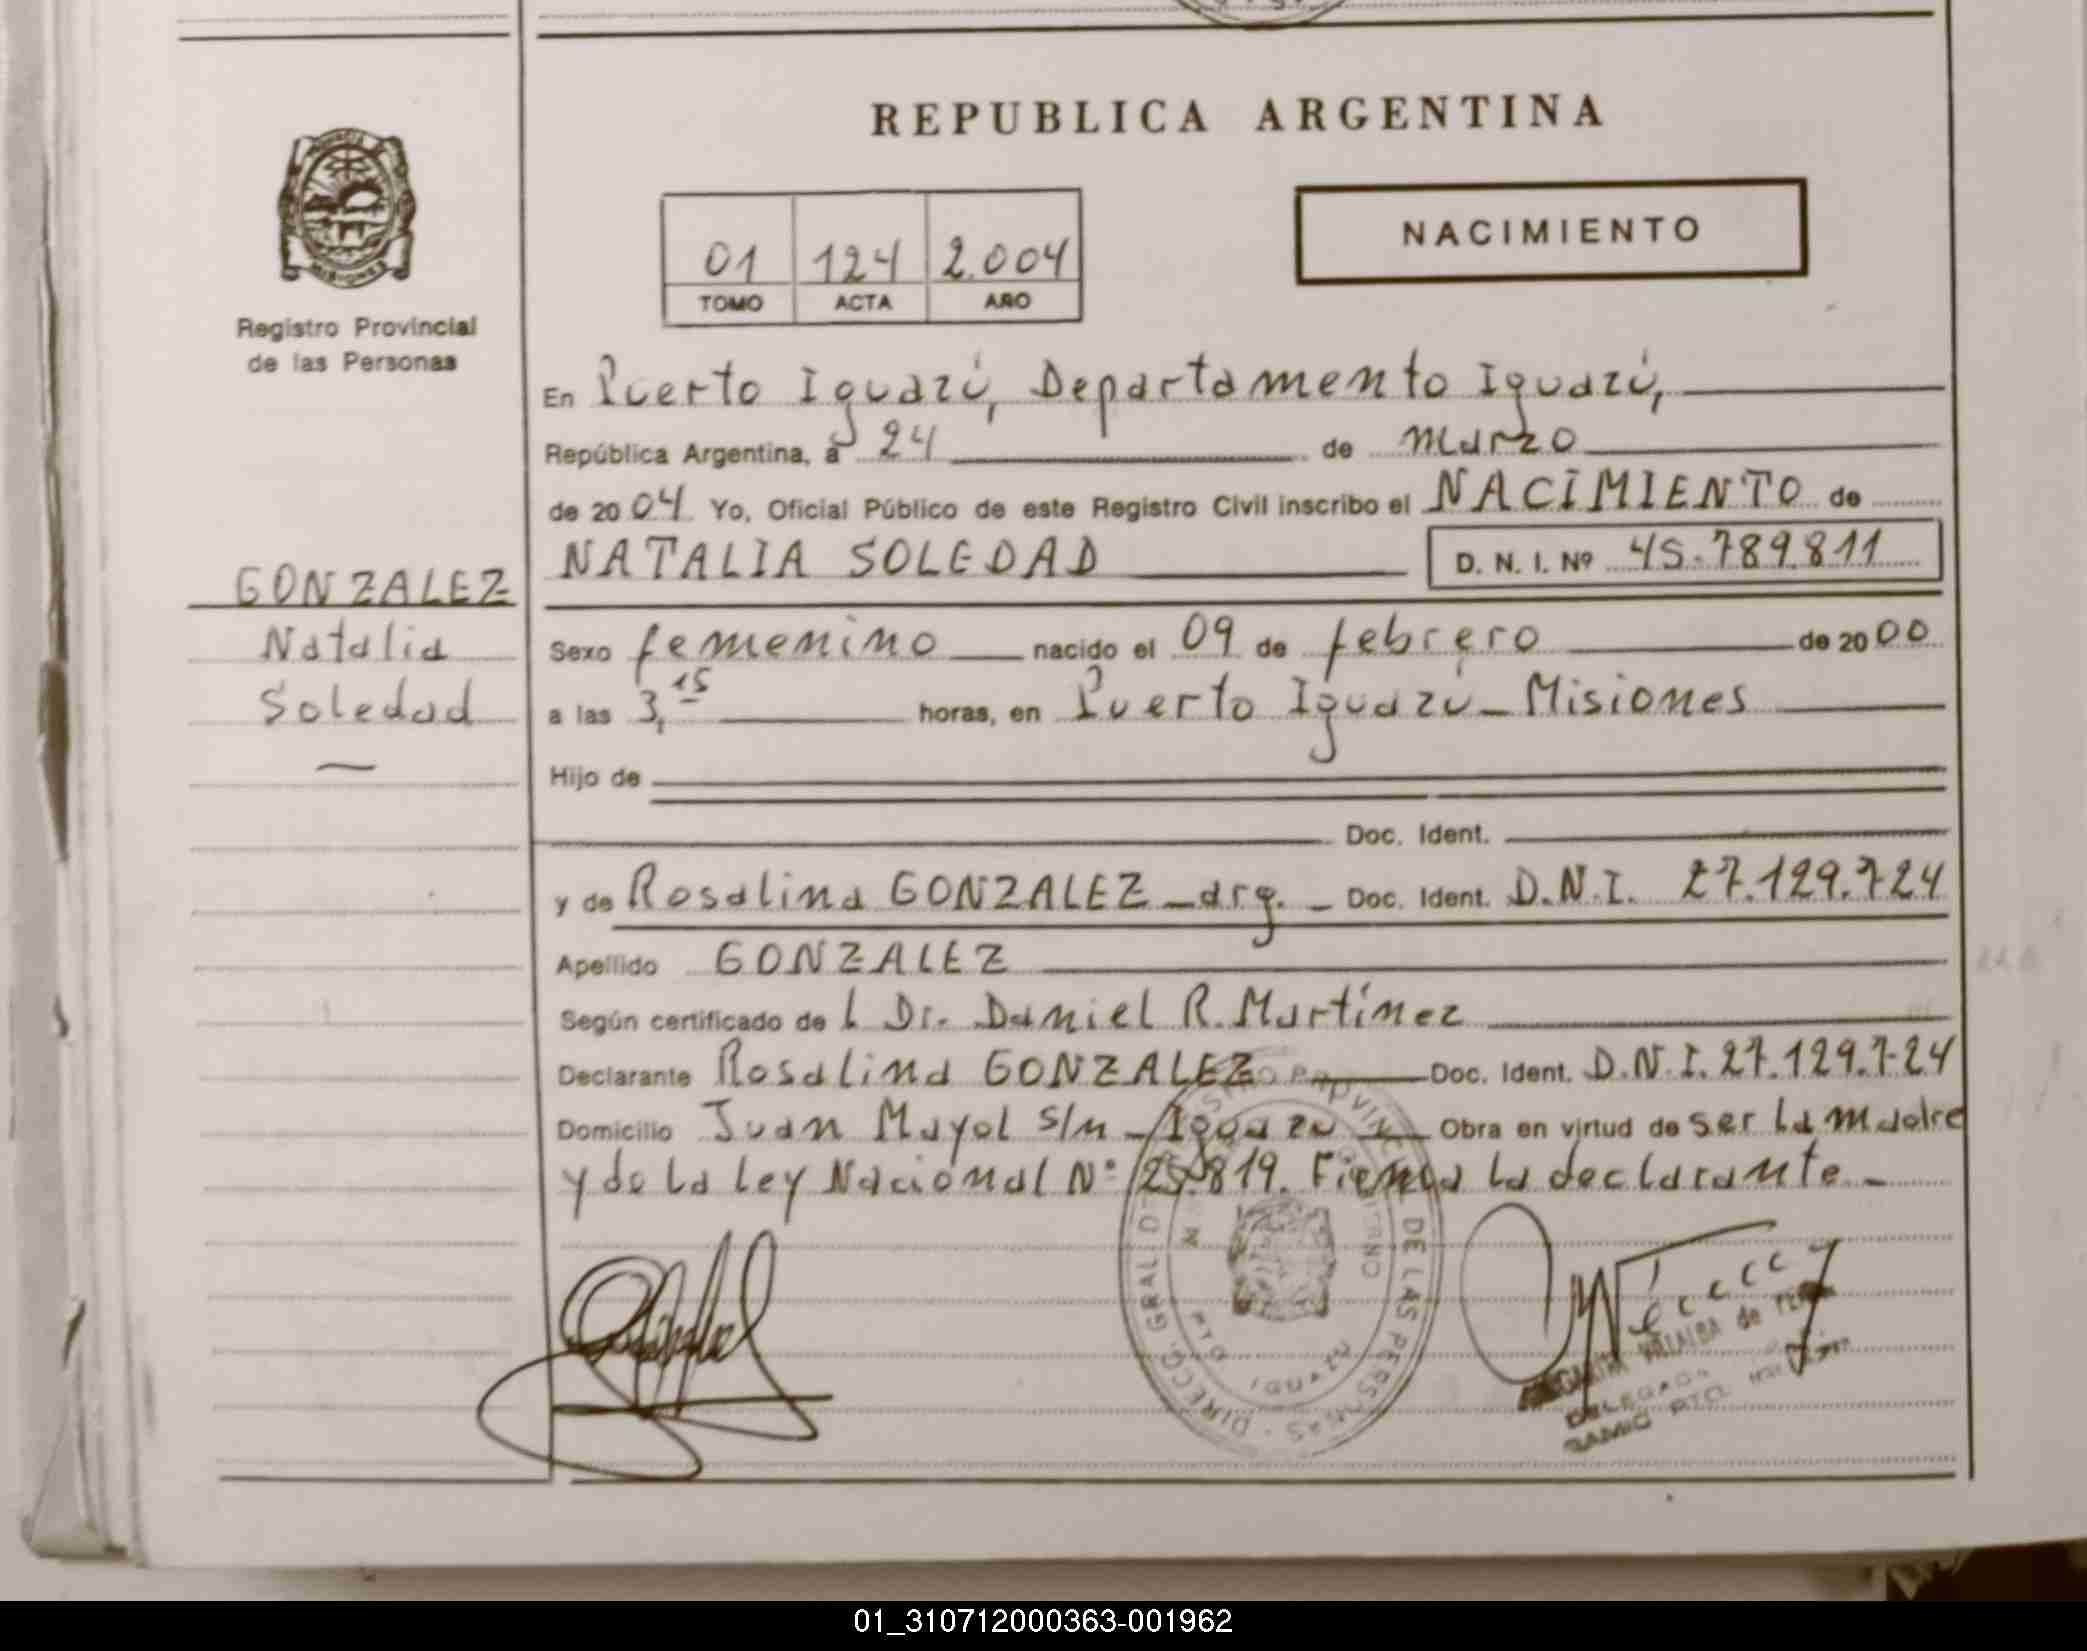 REPUBLICA ARGENTINA
NACIMIENTO
01 124 2.004
TOMO ACTA AÑO
Registro Provincial
de las Personas
En Puerto Iguazú, Departamento Iguazú,
República Argentina, a 24 de marzo
de 2004 Yo, Oficial Público de este Registro Civil inscribo el NACIMIENTO de
NATALIA SOLEDAD D. N. I. Nº 45.789.811
GONZALEZ
Natalia
Soledad
Sexo femenino nacido el 09 de febrero de 2000
a las 3,15 horas, en Puerto Iguazú - Misiones
Hijo de
Doc. Ident.
y de Rosalina GONZALEZ - arg. - Doc. Ident. D.N.I. 27.129.724
Apellido GONZALEZ
Según certificado de l Dr. Daniel R. Martínez
Declarante Rosalina GONZALEZ Doc. Ident. D.N.I. 27.129.724
Domicilio Juan Mayol s/n - Iguazú Obra en virtud de ser la madre
y de la Ley Nacional Nº 25.819. Firma la declarante. -
DIRECC. GRAL. DE LAS PERSONAS
VILLALBA de
01_310712000363-001962